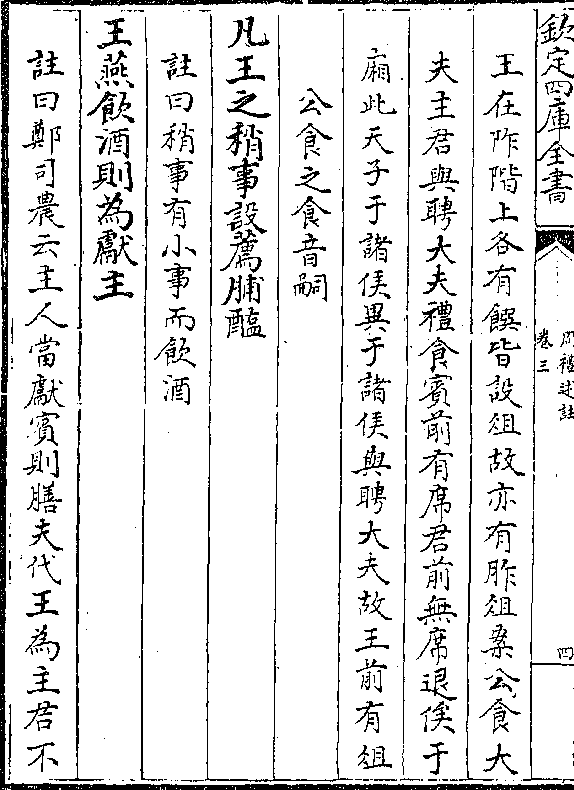 欽定四庫全書
周禮述註
卷三
四
王在阼階上各有饌皆設俎故亦有胙俎案公食大
夫主君與聘大夫禮食賓前有席君前無席退俟于
廂此天子于諸侯異于諸侯與聘大夫故王前有俎
公食之食音嗣
凡王之稍事設薦脯醢
註曰稍事有小事而飲酒
王燕飲酒則為獻主
註曰鄭司農云主人當獻賓則膳夫代王為主君不